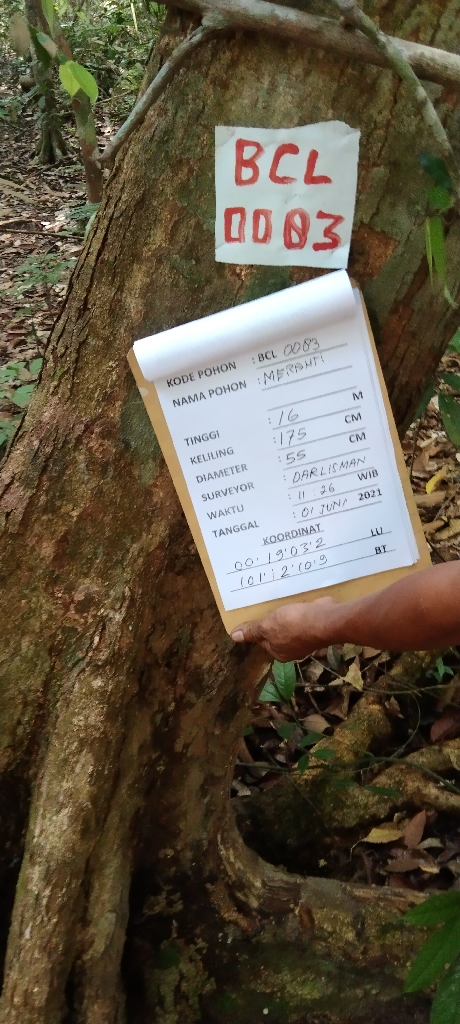 BCL
0083
KODE POHON : BCL 0083
NAMA POHON : MERANTI
TINGGI : 16 M
KELILING : 175 CM
DIAMETER : 55 CM
SURVEYOR : DARLISMAN
WAKTU : 11 26 WIB
TANGGAL : 01 JUNI 2021
KOORDINAT
00° 19' 03' 2 LU
101° 12' 10' 9 BT